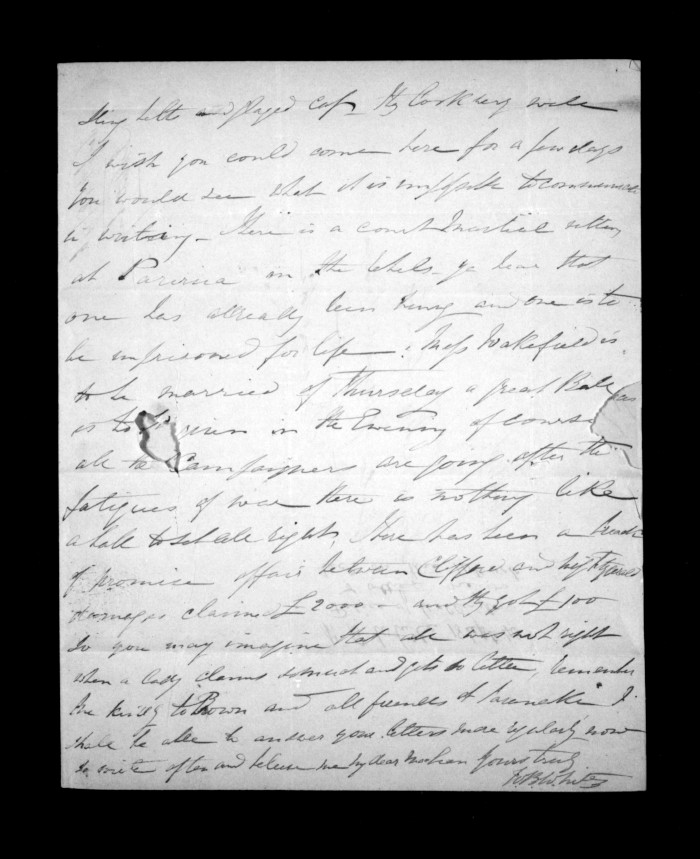 I wish you could come here for a few days
you would see what it is impossible to communicate
in writing_ There is a court Martial sitting
at Parirua in the we hear that
one has allready been hung and one is to
be imprisoned for life_ Miss Wakefield is
to be married of Thursday a great Ball
is to given in the Evening of course
all the Campaigners are going after the
fatigues of war there is nothing like
a ball to set all right, There has been a breach
of promise affair between Clifford and
damages claimed £2000_ and they got £100
so you may imagine that all was not right
when a lady claims so much and gets so little, remember
me kindly to Brown and all friends at Taranaki I
shall be able to answer your letters more regularly now
so write often and believe me my dear McLean Yours truly